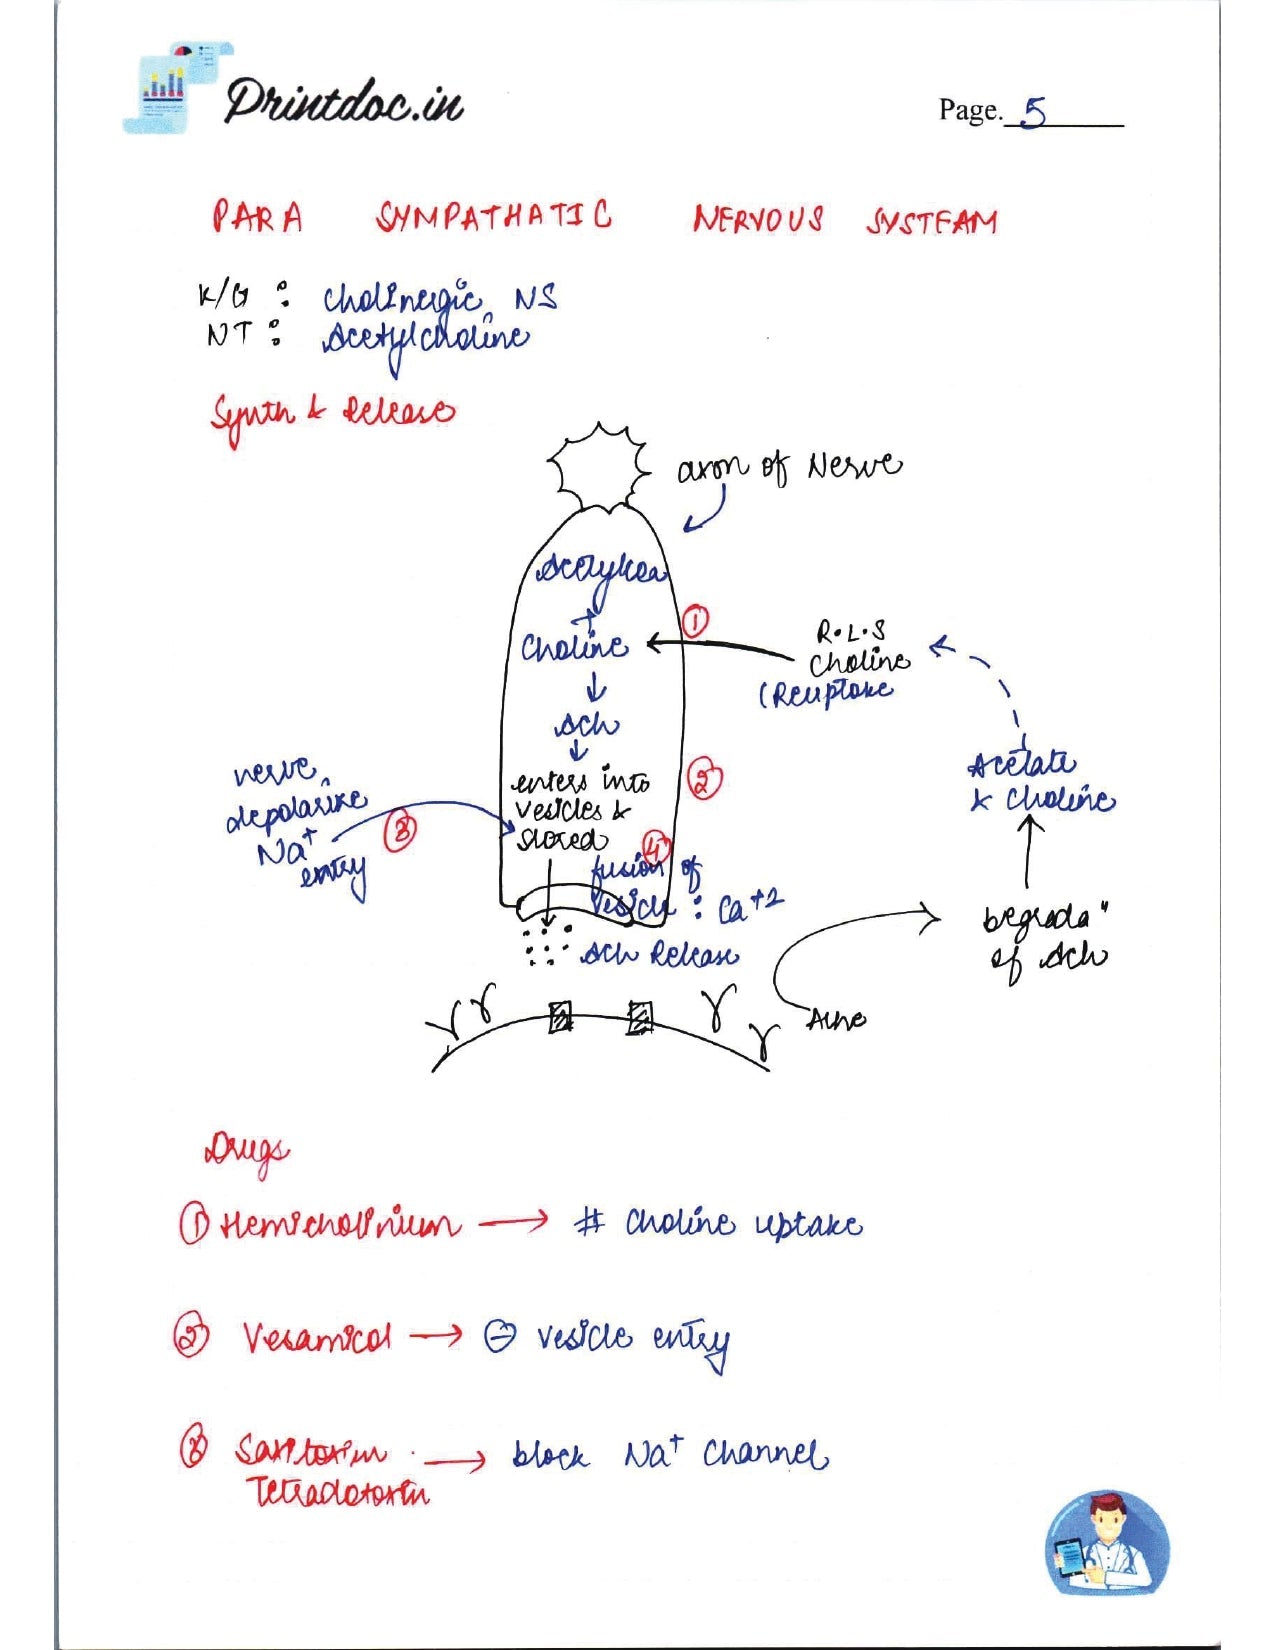 Printdoc.in
Page. 5
PARA SYMPATHATIC NERVOUS SYSTEAM
K/G : Cholinergic NS
NT : Acetylcholine
Synth & Release
axon of Nerve
AcetylCoA
+
Choline
①
R.L.S
Choline
(Reuptake
↓
Ach
↓
enters into
vesicles &
stored
②
nerve
depolarize
Na⁺
entry
③
④
fusion of
vesicle : Ca⁺²
Ach Release
Acetate
& Choline
Degradaⁿ
of Ach
Ache
Drugs
① Hemicholinium → # choline uptake
② Vesamicol → ⊖ vesicle entry
③ Saxitoxin → block Na⁺ channel
Tetradotoxin